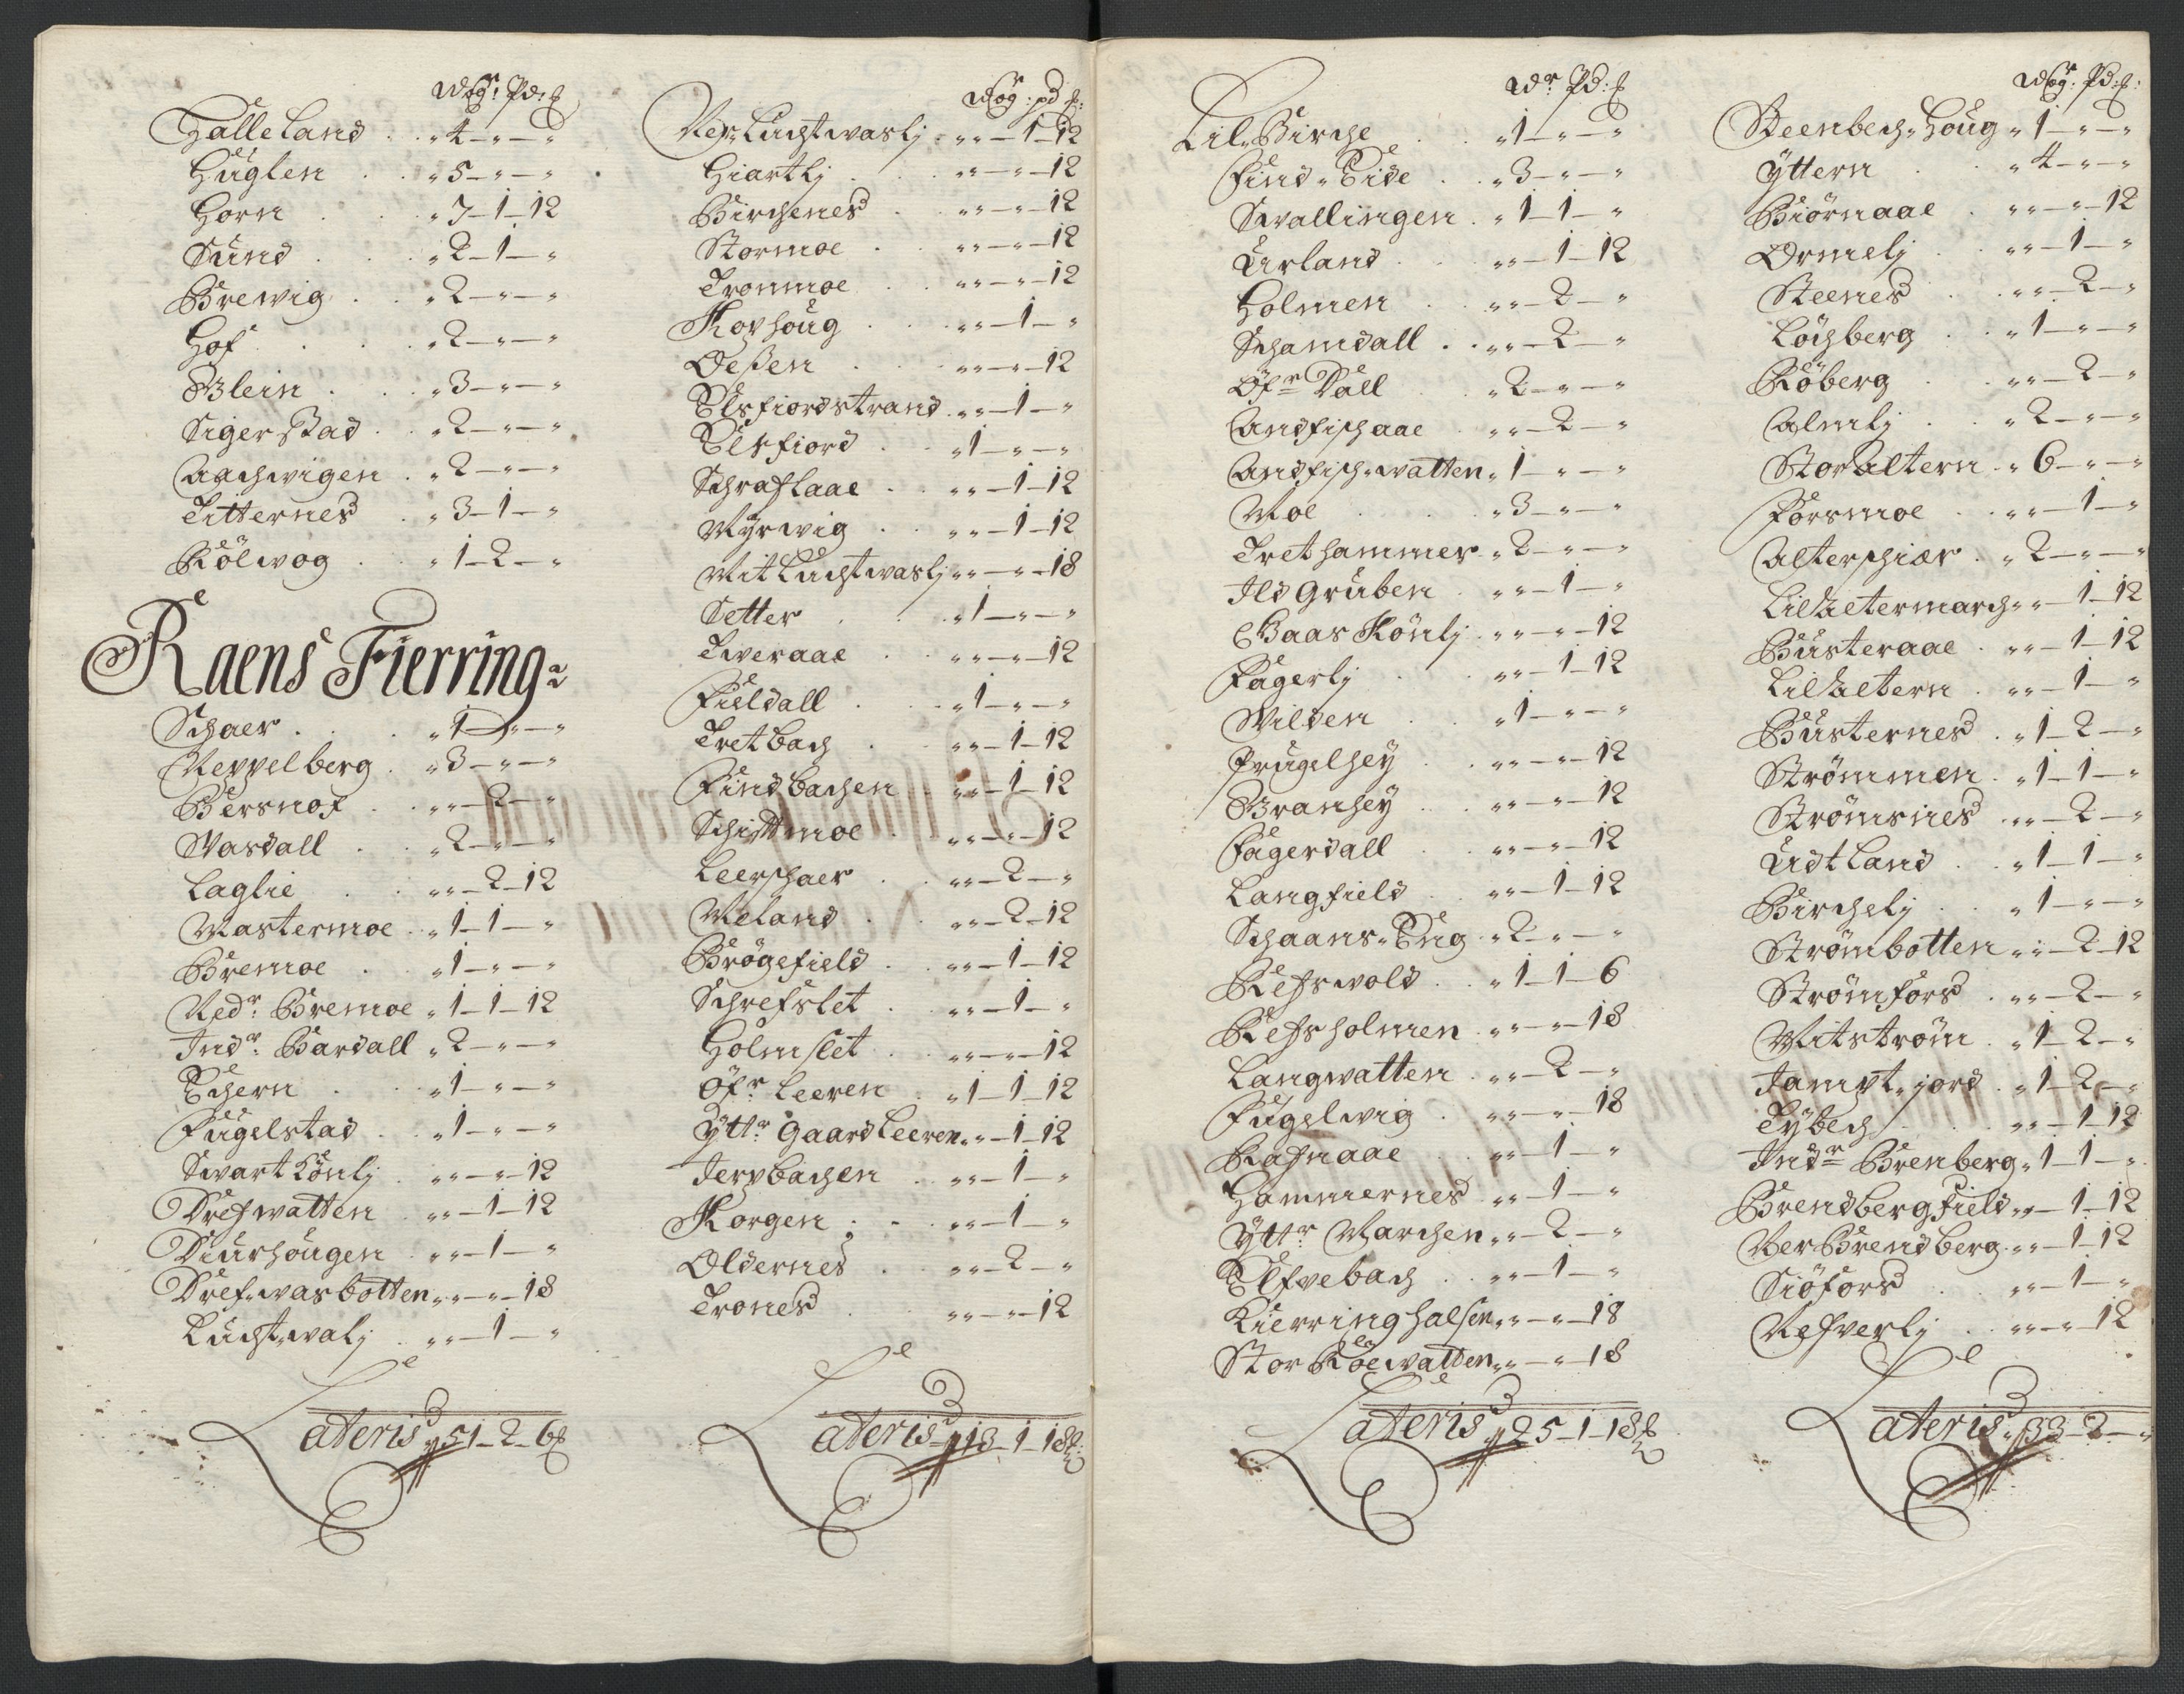 Wog: Pd: ℔
Halleland . . „ 4 – „ – „
Huglen . . „ 5 – „ – „
Horn . . „ 7 – 1 – 12
Sund . . „ 2 – 1 – „
Brewig . . „ 2 – „ – „
Hof . . . „ 2 – „ – „
Blein . . „ 3 – „ – „
Sigerstad . „ 2 – „ – „
Aachwigen . „ 2 – „ – „
Titternes . „ 3 – 1 – „
Kölwog . „ 1 – 2 – „
Raens Fierring
Schaer . . „ 1 – „ – „
Neppelberg . „ 3 – „ – „
Bersnof . „ „ – 2 – „
Wasdall . „ 2 – „ – „
Laglie . „ „ – 2 – 12
Mastermoe . „ 1 – 1 – „
Bremoe . „ 1 – „ – „
Nedr: Bremoe „ 1 – 1 – 12
Indr: Bardall „ 2 – „ – „
Echern . „ 1 – „ – „
Fugelstad . „ 1 – „ – „
Swart Könlj . „ „ – „ – 12
Drefwatten . „ „ – 1 – 12
Diurhöugen . „ „ – 1 – „
Drefwasbotten „ „ – „ – 18
Luchtwalj . „ „ – 1 – „
Lateris „ 51 – 2 – 6 ℔
Wog: pd ℔:
Ner Luchtwaslj „ „ – 1 – 12
Hiartlj . „ „ – „ – 12
Birchenes . „ „ – „ – 12
Stormoe . „ „ – „ – 12
Tronmoe . „ „ – „ – 12
Kophöug . „ „ – 1 – „
Oeßen . „ „ – „ – 12
Elsfiordstrand „ „ – 1 – „
Elsfiord . „ 1 – „ – „
Schraflaae . „ „ – 1 – 12
Myrwig . „ „ – 1 – 12
Mit Luchtwaslj „ „ – „ – 18
Setter . „ 1 – „ – „
Tweraae . „ „ – „ – 12
Fieldall . „ 1 – „ – „
Tretbach . „ „ – 1 – 12
Findbachen . „ „ – 1 – 12
Schittmoe . „ „ – „ – 12
Leerschaer . „ „ – 2 – „
Meland . „ „ – 2 – 12
Brögefield . „ „ – 1 – 12
Schrefslet . „ „ – 1 – „
Holmslet . „ „ – „ – 12
Öfr: Leeren . „ 1 – 1 – 12
Yttr: Gaard Leeren „ „ – 1 – 12
Jerpbachen . „ „ – 1 – „
Korgen . . „ „ – 1 – „
Oldernes . „ „ – 2 – „
Trones . „ „ – „ – 12
Lateris „ 13 – 1 – 18 ℔:
Wr: Pd: ℔
Lil Birche . „ 1 – „ – „
Find Eide . „ 3 – „ – „
Swallingen . „ 1 – 1 – „
Urland . „ „ – 1 – 12
Holmen . „ „ – 2 – „
Schamdall . „ „ – 2 – „
Öfr Dall . „ 2 – „ – „
Andfischaae . „ „ – 2 – „
Andfischwatten „ 1 – „ – „
Moe . „ 3 – „ – „
Trethammer . „ 2 – „ – „
Ildgruben . „ „ – 1 – „
Baas Könlj . „ „ – „ – 12
Fagerlj . „ „ – 1 – 12
Wilden . „ 1 – „ – „
Prugelhey . „ „ – „ – 12
Branhey . „ „ – „ – 12
Fagerdall . „ „ – „ – 12
Langfield . „ „ – 1 – 12
Schaans Eng . „ 2 – „ – „
Refswold . „ 1 – 1 – 6
Refsholmen . „ „ – „ – 18
Langwatten . „ „ – 2 – „
Fugelwig . „ „ – „ – 18
Rafnaae . „ „ – 1 – „
Hammernes . „ „ – 1 – „
Yttr: Marchen „ „ – 2 – „
Elfvebach . „ „ – 1 – „
Kierringhalsen „ „ – „ – 18
Stor Röewatten „ „ – „ – 18
Lateris „ 25 – 1 – 18 ℔
Wog: Pd: ℔:
Steenbech Höug „ 1 – „ – „
Yttern . „ 4 – „ – „
Biörnaae . „ „ – „ – 12
Ormelj . „ „ – 1 – „
Steenes . „ „ – 2 – „
Löchberg . „ 1 – „ – „
Röberg . „ „ – 2 – „
Almlj . „ 2 – „ – „
Stor Altern . „ 6 – „ – „
Forsmoe . „ „ – 1 – „
Alterschiær . „ 2 – „ – „
Lil Altermarch „ „ – 1 – 12
Busteraae . „ „ – 1 – 12
Lil Altern . „ „ – 1 – „
Busternes . „ 1 – 2 – „
Strömmen . „ 1 – 1 – „
Strömsnes . „ „ – 2 – „
Udtland . „ 1 – 1 – „
Birchelj . „ 1 – „ – „
Strömbotten . „ „ – 2 – 12
Strömfors . „ „ – 2 – „
Mitström . „ 1 – 2 – „
Jampt jord . „ 1 – 2 – „
Tybech . „ „ – 1 – 12
Indr Brenberg „ 1 – 1 – „
Brendbergfield „ „ – 1 – 12
Ner Brendberg „ „ – 1 – 12
Siöfors . „ „ – 1 – „
Nefverlj . „ „ – „ – 12
Lateris „ 33 – 2 – „